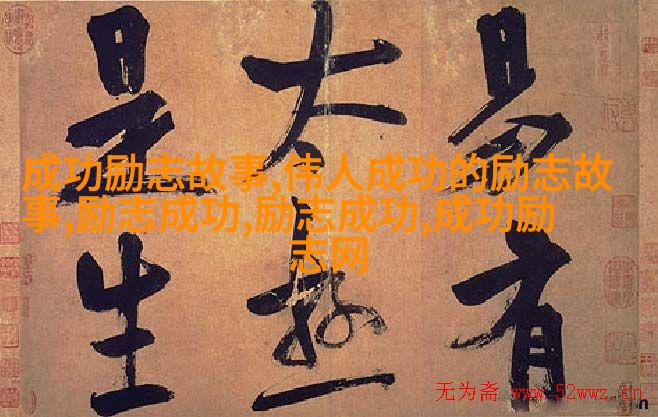 易有
太極
是生
成功励志故事,伟人成功的励志故
事,励志成功,励志成功,成功励
志网
无为斋 www.52wwz.cn